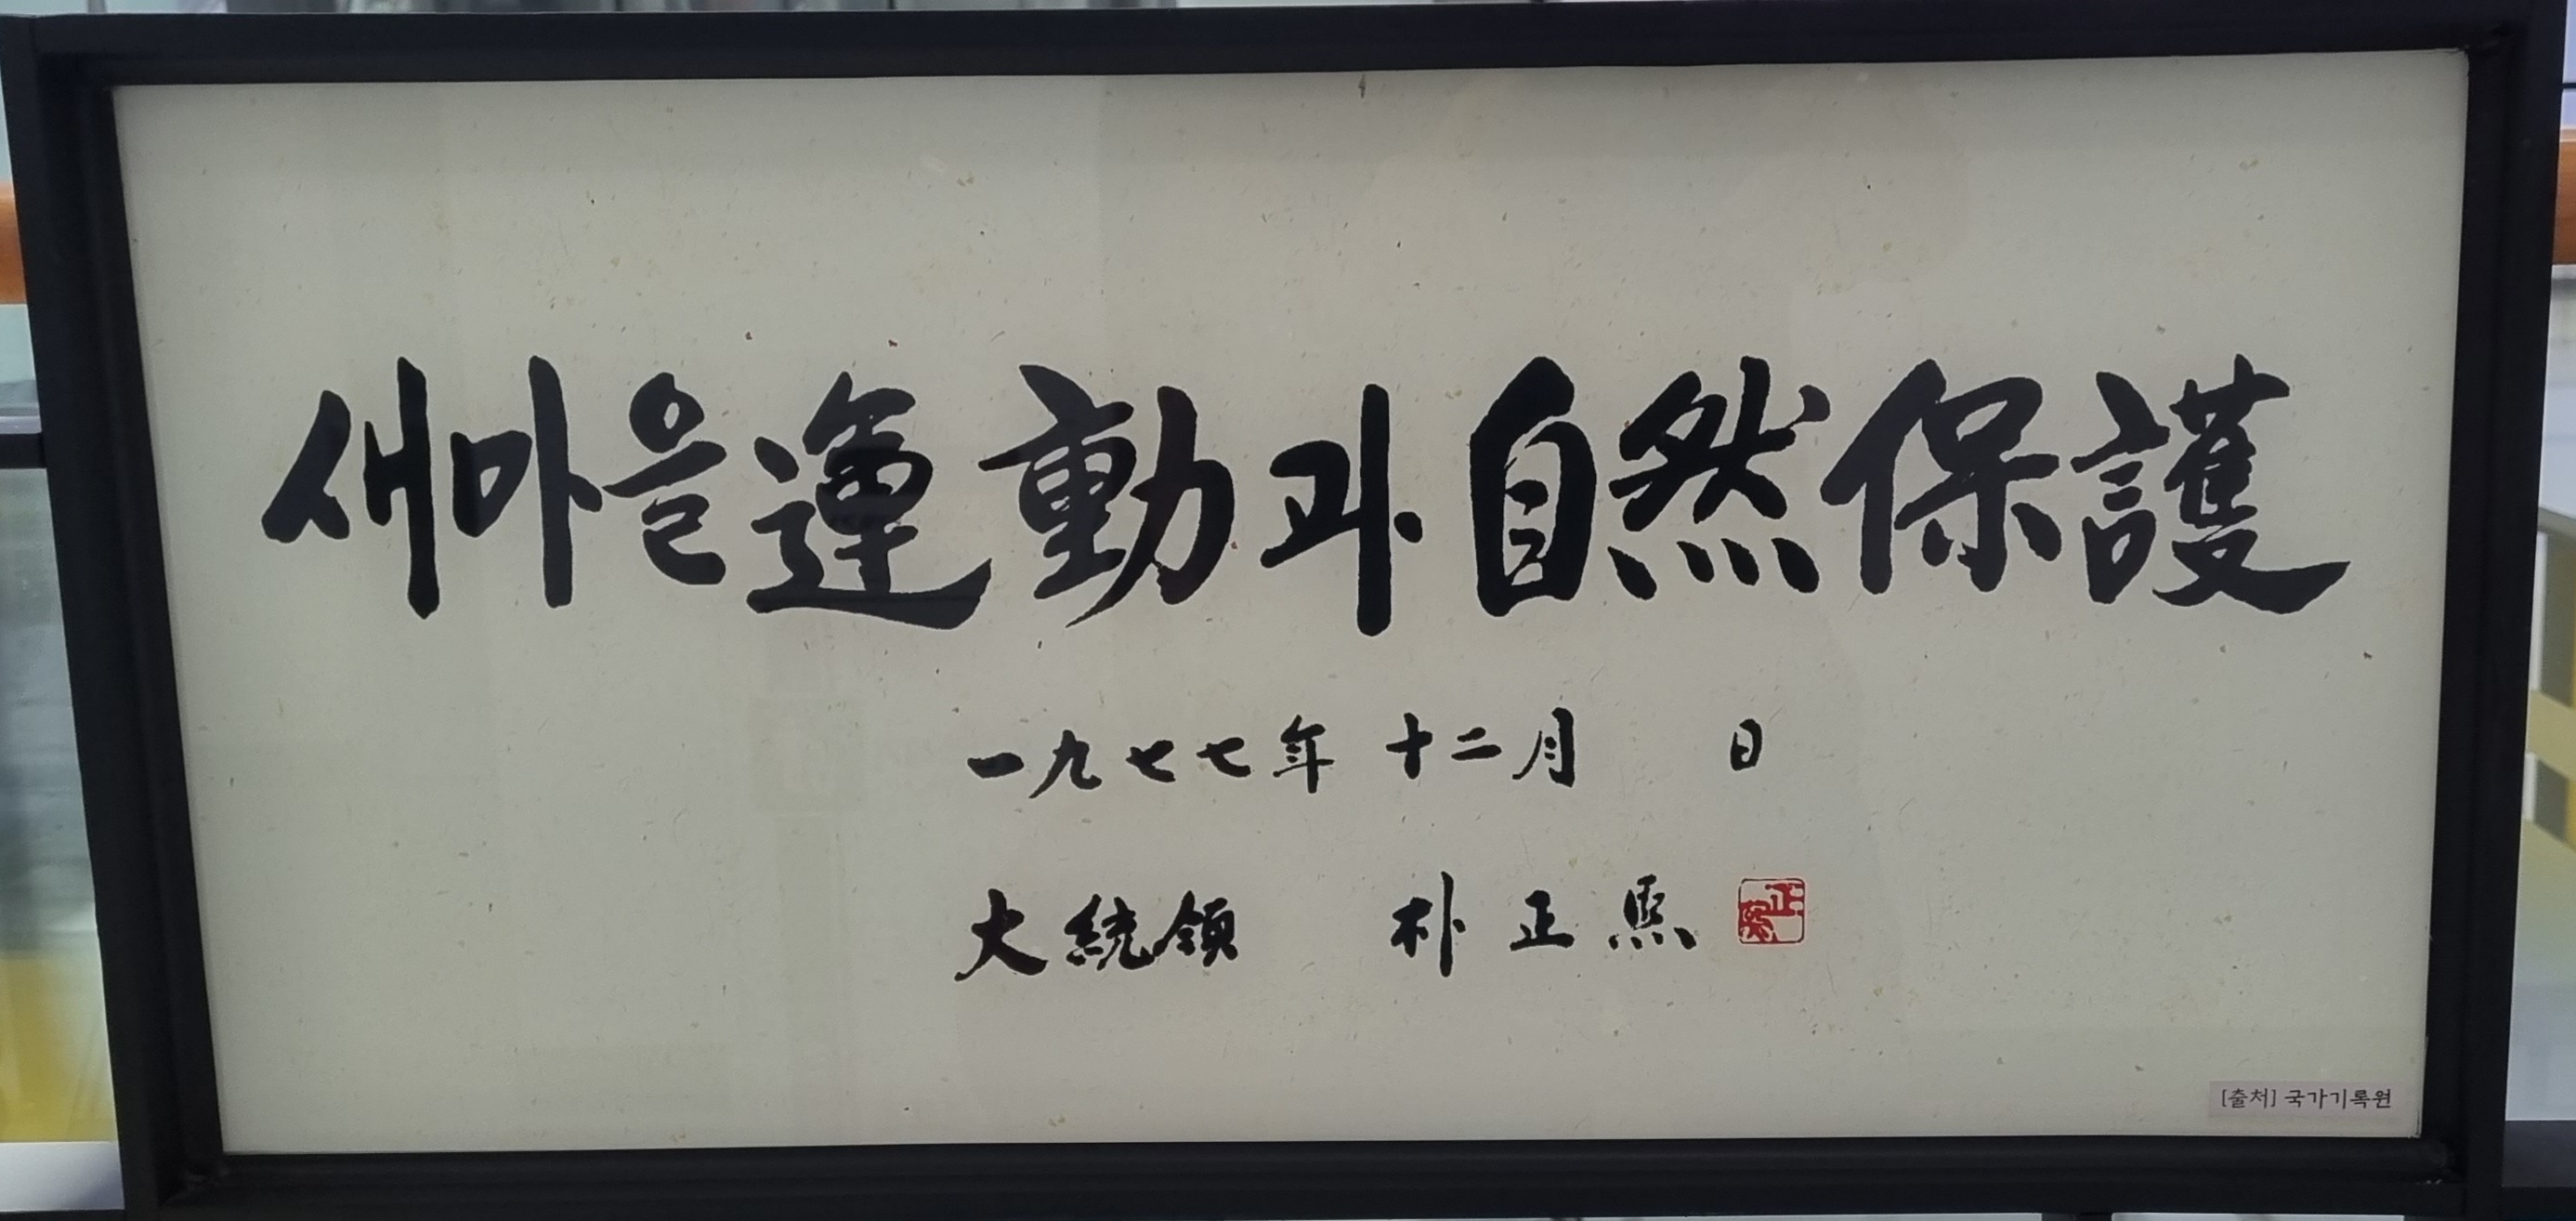 새마을運動과 自然保護
一九七七年 十二月 日
大統領 朴正熙
正熙
[출처] 국가기록원